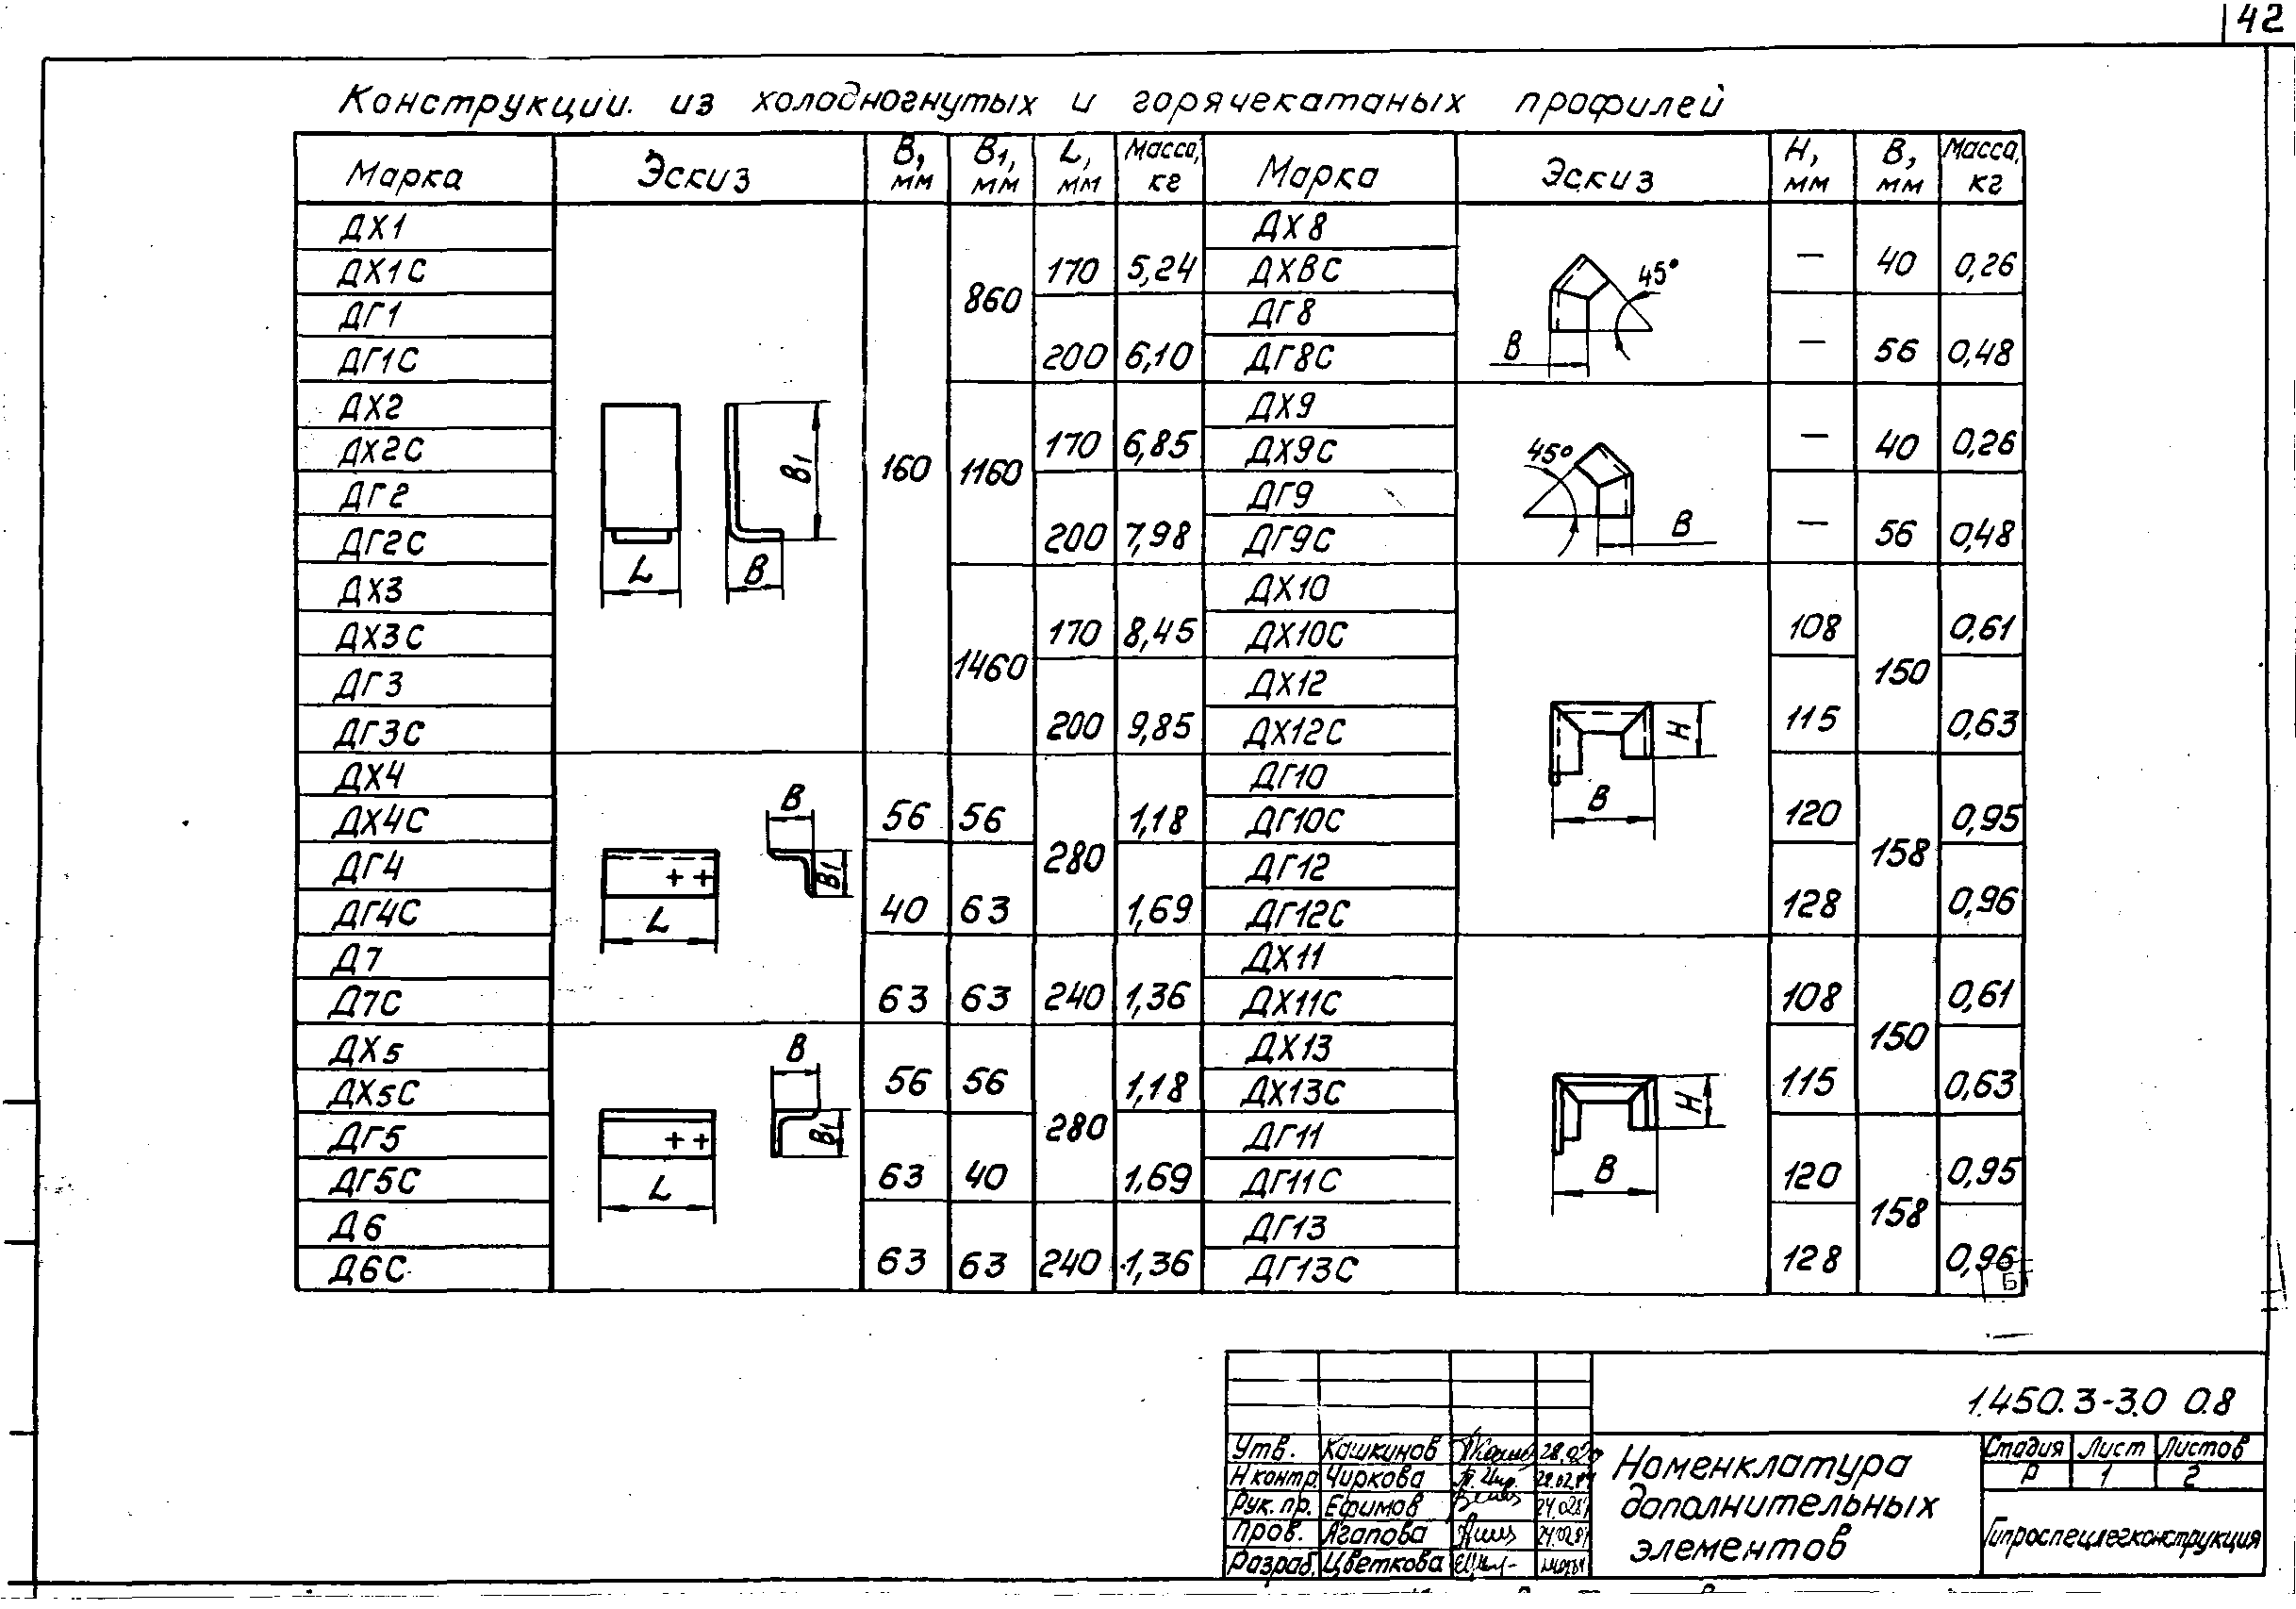 42
Конструкции из холодногнутых и горячекатаных профилей
Марка Эскиз В, мм В1, мм L, мм Масса, кг Марка Эскиз Н, мм В, мм Масса, кг
ДХ1 ДХ8
ДХ1С 170 5,24 ДХ8С — 40 0,26
860 45°
ДГ1 ДГ8
ДГ1С 200 6,10 ДГ8С В — 56 0,48
ДХ2 ДХ9
ДХ2С 170 6,85 ДХ9С 45° — 40 0,26
В1 160 1160
ДГ2 ДГ9
ДГ2С 200 7,98 ДГ9С В — 56 0,48
L В
ДХ3 ДХ10
ДХ3С 170 8,45 ДХ10С 108 0,61
1460 150
ДГ3 ДХ12
ДГ3С 200 9,85 ДХ12С Н 115 0,63
ДХ4 ДГ10
ДХ4С В 56 56 1,18 ДГ10С В 120 0,95
280 158
ДГ4 В1 ДГ12
ДГ4С L 40 63 1,69 ДГ12С 128 0,96
Д7 ДХ11
Д7С 63 63 240 1,36 ДХ11С 108 0,61
150
ДХ5 В ДХ13
ДХ5С 56 56 1,18 ДХ13С Н 115 0,63
280
ДГ5 В1 ДГ11
ДГ5С L 63 40 1,69 ДГ11С В 120 0,95
158
Д6 ДГ13
Д6С 63 63 240 1,36 ДГ13С 128 0,96
Б
1.450.3-3.0 0.8
Утв. Кашкинов
Н контр. Чиркова
Рук. пр. Ефимов
Пров. Агапова
Разраб. Цветкова
Номенклатура
дополнительных
элементов
Стадия Лист Листов
Р 1 2
Гипроспецлегконструкция